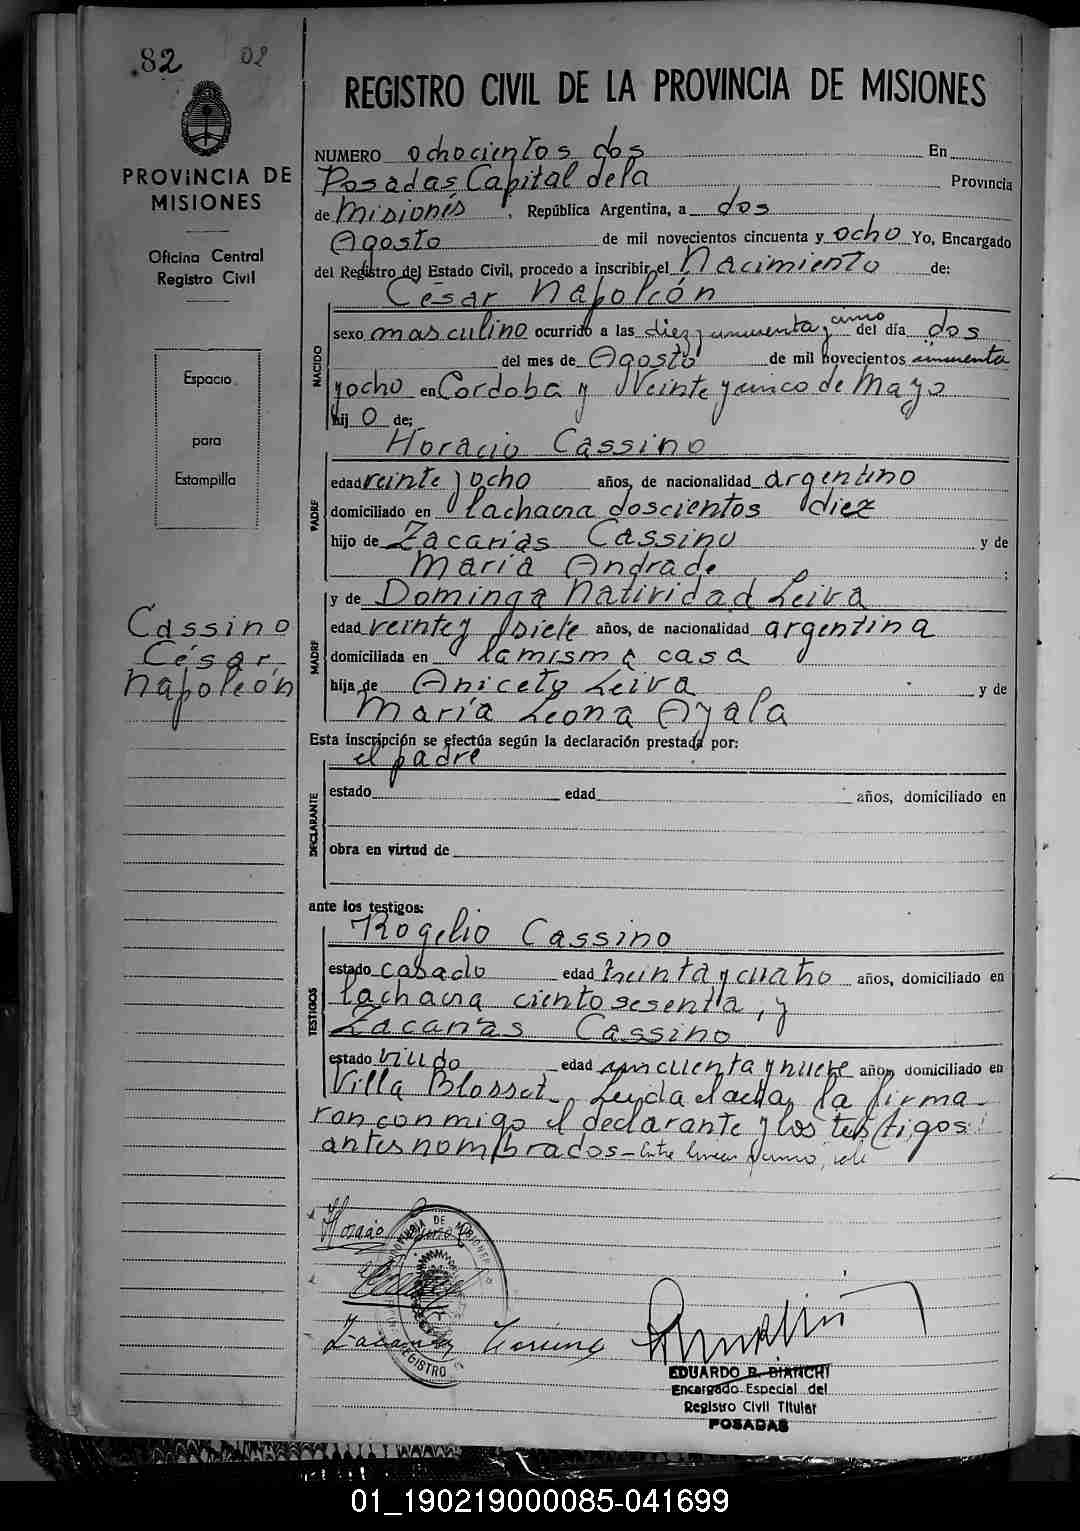 82 02
PROVINCIA DE
MISIONES
Oficina Central
Registro Civil
Espacio
para
Estampilla
Cassino
César
Napoleón
REGISTRO CIVIL DE LA PROVINCIA DE MISIONES
NUMERO ochocientos dos En
Posadas Capital dela Provincia
de Misiones, República Argentina, a dos
Agosto de mil novecientos cincuenta y ocho Yo, Encargado
del Registro del Estado Civil, procedo a inscribir el Nacimiento de:
César Napoleón
NACIDO
sexo masculino ocurrido a las diez y cincuenta y cinco del día dos
del mes de Agosto de mil novecientos cincuenta
yocho en Cordoba y Veinte y cinco de Mayo
hij o de:
Horacio Cassino
PADRE
edad veinte y ocho años, de nacionalidad argentino
domiciliado en la chacra doscientos diez
hijo de Zacarías Cassino y de
María Andrade ;
y de Dominga Natividad Leiva
MADRE
edad veinte y siete años, de nacionalidad argentina
domiciliada en la misma casa
hija de Aniceto Leiva y de
María Leona Ayala
Esta inscripción se efectúa según la declaración prestada por:
el padre
DECLARANTE
estado edad años, domiciliado en
obra en virtud de
ante los testigos:
Rogelio Cassino
TESTIGOS
estado casado edad treinta y cuatro años, domiciliado en
la chacra ciento sesenta, y
Zacarías Cassino
estado viudo edad cincuenta y nueve años, domiciliado en
Villa Blosset. Leida el acta, la firma-
ron conmigo el declarante y los testigos
antes nombrados - Entre lineas: cinco, vale
Horacio
Zacarias Cassino
PROVINCIA DE MISIONES
REGISTRO
EDUARDO B. BIANCHI
Encargado Especial del
Registro Civil Titular
POSADAS
01_190219000085-041699